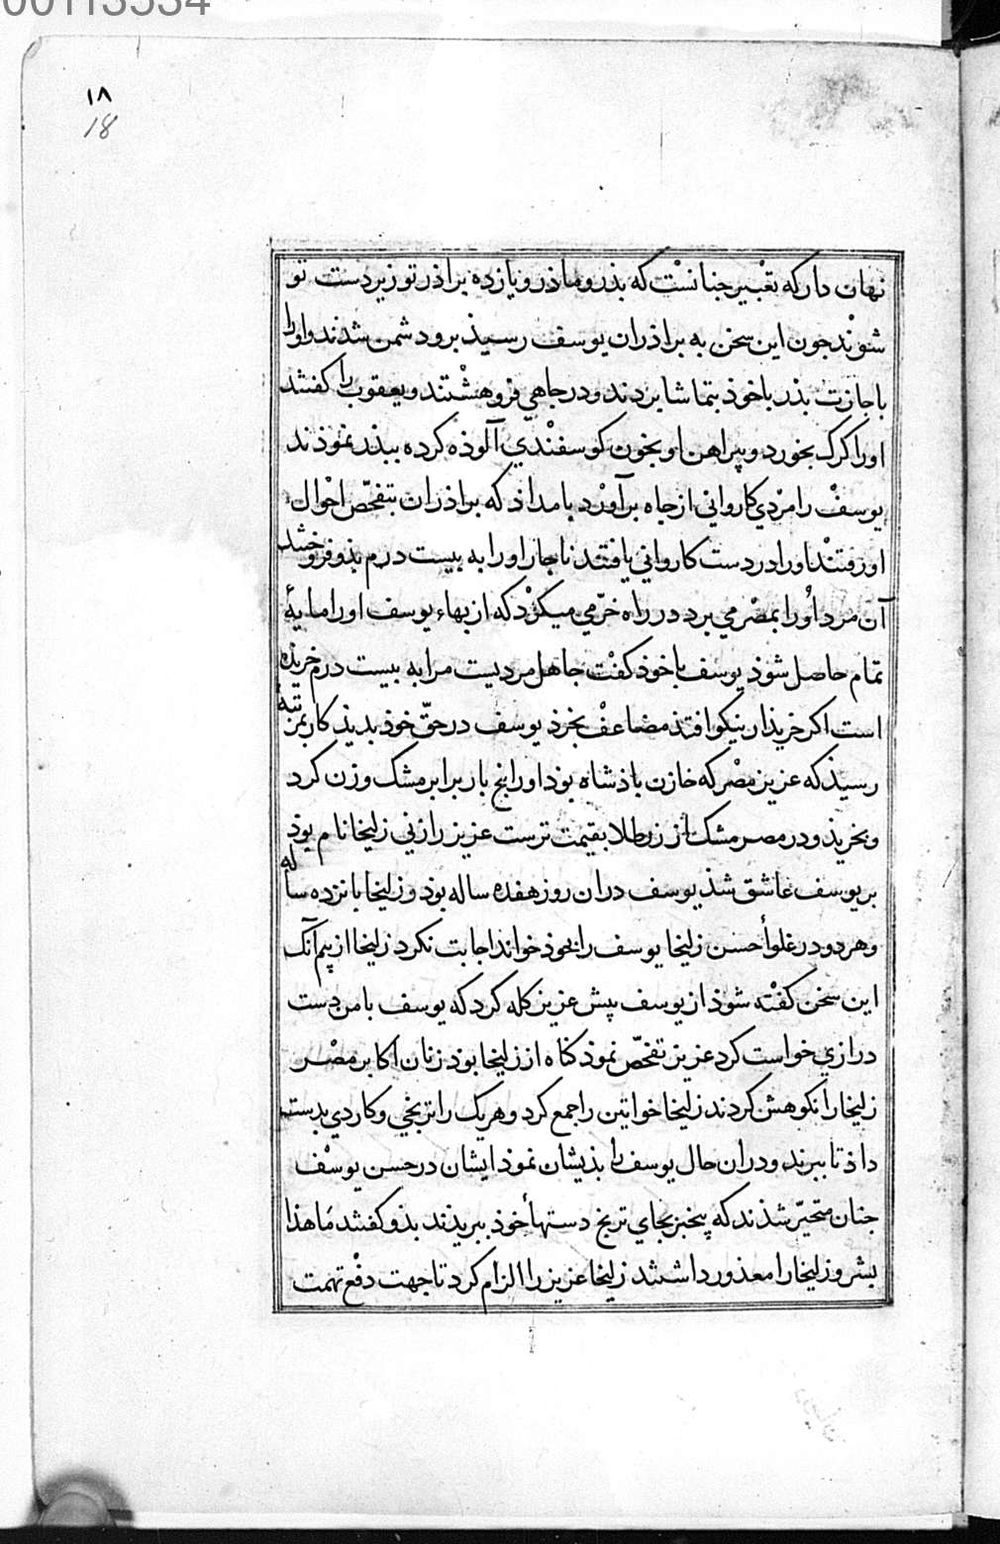 00113534
١٨
18
نهان دار که تعْبیر جنانسْت که بذر و ماذر و یازده براذر تو زیر دست تو
شوند جون این سخن به براذران یوسف رسیذ برو دشمن شدند و اورا
باجازت بذر باخوذ بتماشا بردند و در جاهی فروهشْتند و یعقوب را کفتند
اورا کرک بخورد و پیراهن او بخون کوسفنْدی آلوذه کرده ببذر نموذند
یوسفْ را مرْدی کاروانی از جاه برآورْد بامداذ که براذران بتفحّص احْوال
او رفتنْد اورا در دست کاروانی یافتند ناجار اورا به بیست درم بذو فروختند
آن مرد اوُرا بمصْر می برد در راه خرّمی میکرْد که از بهاء یوسف اورا مایهٔ
تمام حاصل شوذ یوسف باخوذ کفْت جاهل مردیست مرا به بیست درم خریذه
است اکر خریذار نیکو افتذ مضاعفْ بخرذ یوسف در حقّ خوذ بدیذ کار بمرتبهٔ
رسیذ که عزیز مصْر که خازن باذشاه بوذ اورا پنج بار برابر مشک وزن کرد
و بخریذ و در مصر مشک از زر طلا بقیمت ترست عزیز را زنی زلیخا نام بوذ
بر یوسف عاشق شذ یوسف دران روز هفده ساله بوذ و زلیخا بانزده ساله
و هر دو در غلواُ حسن زلیخا یوسف را بخوذ خواند اجابت نکرد زلیخا از بیم آنک
این سخن کفْته شوذ از یوسف پیش عزیز کله کرد که یوسف با من دست
درازی خواست کرد عزیز تفحّص نموذ کناه از زلیخا بوذ زنان اکابر مصْر
زلیخا را نکوهش کردند زلیخا خواتین را جمع کرد و هریک را ترنجی و کاردی بدست
داذ تا ببرند و دران حال یوسف را بذیشان نموذ ایشان در حسن یوسْف
جنان متحیّر شذند که بیخبر بجای ترنج دستهاُ خوذ ببریذند بذو کفتند مَا هذا
بشر و زلیخا را معذور داشتند زلیخا عزیز را الزام کرد تا جهت دفْع تهمت